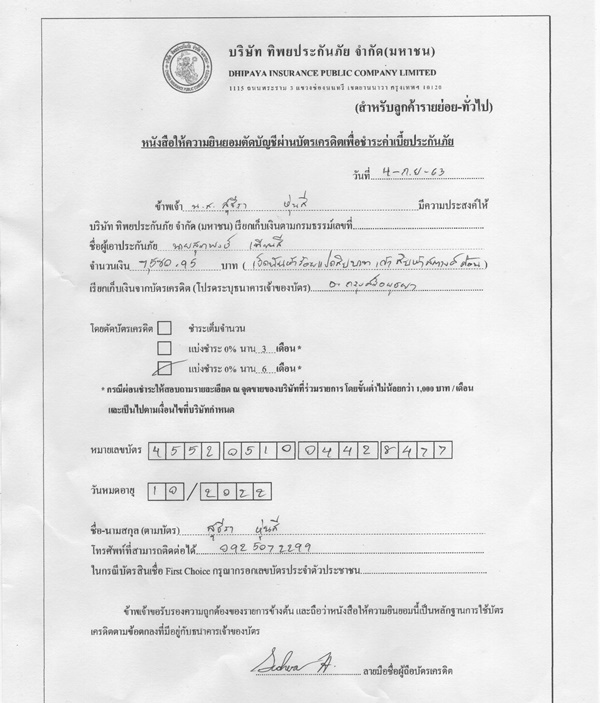 บริษัท ทิพยประกันภัย จำกัด(มหาชน)
DHIPAYA INSURANCE PUBLIC COMPANY LIMITED
1115 ถนนพระราม 3 แขวงช่องนนทรี เขตยานนาวา กรุงเทพฯ 10120
(สำหรับลูกค้ารายย่อย-ทั่วไป)
หนังสือให้ความยินยอมตัดบัญชีผ่านบัตรเครดิตเพื่อชำระค่าเบี้ยประกันภัย
วันที่ 4-ก.ย-63
ข้าพเจ้า น.ส. สุธีรา หุ่นดี มีความประสงค์ให้
บริษัท ทิพยประกันภัย จำกัด (มหาชน) เรียกเก็บเงินตามกรมธรรม์เลขที่
ชื่อผู้เอาประกันภัย นาย
จำนวนเงิน 7,580.95 บาท ( เจ็ดพันห้าร้อยแปดสิบบาทเก้าสิบห้าสตางค์ถ้วน )
เรียกเก็บเงินจากบัตรเครดิต (โปรดระบุธนาคารเจ้าของบัตร) ธ. กรุงศรีอยุธยา
โดยตัดบัตรเครดิต ชำระเต็มจำนวน
แบ่งชำระ 0% นาน 3 เดือน *
แบ่งชำระ 0% นาน 6 เดือน *
* กรณีผ่อนชำระให้สอบถามรายละเอียด ณ จุดขายของบริษัทที่ร่วมรายการ โดยขั้นต่ำไม่น้อยกว่า 1,000 บาท / เดือน
และเป็นไปตามเงื่อนไขที่บริษัทกำหนด
หมายเลขบัตร 4552 0510 0442 8477
วันหมดอายุ 10/2022
ชื่อ-นามสกุล (ตามบัตร) สุธีรา หุ่นดี
โทรศัพท์ที่สามารถติดต่อได้ 092 5072299
ในกรณีบัตรสินเชื่อ First Choice กรุณากรอกเลขบัตรประจำตัวประชาชน
ข้าพเจ้าขอรับรองความถูกต้องของรายการข้างต้น และถือว่าหนังสือให้ความยินยอมนี้เป็นหลักฐานการใช้บัตร
เครดิตตามข้อตกลงที่มีอยู่กับธนาคารเจ้าของบัตร
ลายมือชื่อผู้ถือบัตรเครดิต